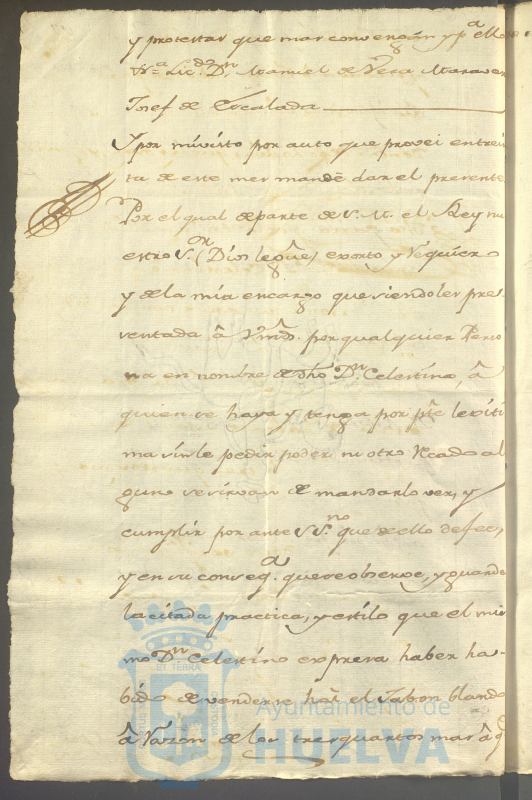 y protextar que mas convengan y pa ello
Na Licdo Dn Manuel de Vera Maraver
Josef de Escalada
Y por mi visto por auto que provei en trein
ta de este mes mandè dar el presente
Por el qual de parte de S. M. el Rey nu
estro Sor (Dios le gue) exorto y requiero
y de la mia encargo que siendoles pre
sentada â Vmds. por qualquier Perso
na en nombre de dho Dn Celestino, â
quien se haya y tenga por pte lexiti
ma sin le pedir poder ni otro Recado al
guno se sirvan de mandarlo ver, y
cumplir por ante SSno que de ello de fee,
y en su conseqa. que se observe, y guarde
la citada practica, y estilo que el mis
mo Dn Celestino expresa haber ha-
bido de venderse hai el Jabon blando
â razon de los tres quartos mas â q
ET TERRA
Ayuntamiento de
HUELVA